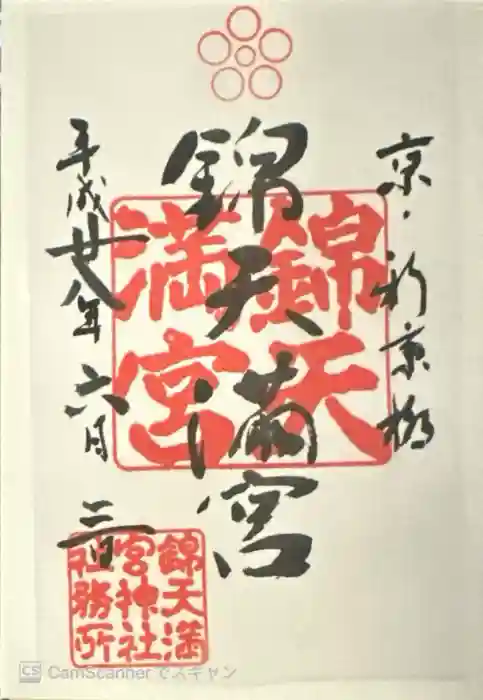 京・新京極
錦天満宮
平成廿八年六月二日
錦天
満宮
錦天満
宮神社
社務所
CS CamScanner でスキャン